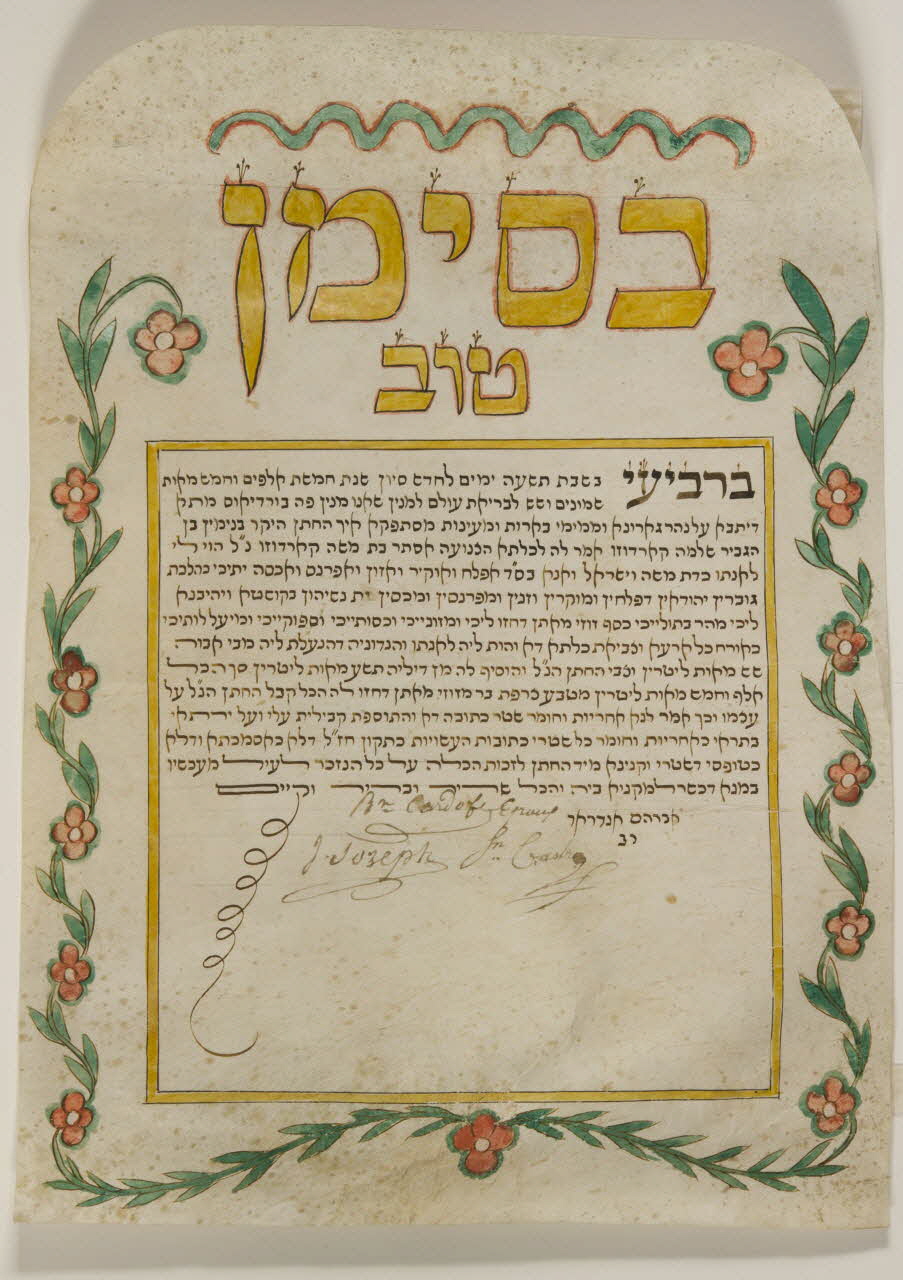 בסימן
טוב
ברביעי בשבת תשעה ימים לחדש סיון שנת חמשת אלפים וחמש מאות
שמונים ושש לבריאת עולם למנין שאנו מנין פה בורדיאוס מתא
דיתבא על נהר גארונא וממימי בארות ומעינות מסתפקא איך החתן היקר בנימין בן
הגביר שלמה קארדוזו אמר לה לכלתא הצנועה אסתר בת משה קארדוזו נ״ל הוי לי
לאנתו כדת משה וישראל ואנא בס״ד אפלח ואוקיר ואזון ואפרנס ואכסה יתיכי כהלכת
גוברין יהודאין דפלחין ומוקרין וזנין ומפרנסין ומכסין ית נשיהון בקושטא ויהיבנא
ליכי מהר בתולייכי כסף זוזי מאתן דחזו ליכי ומזונייכי וכסותייכי וספוקייכי ומיעל לותיכי
כאורח כל ארעא וצביאת כלתא דא והות ליה לאנתו והנדוניה דהנעלת ליה מבי אבוה
שש מאות ליטרין וצבי החתן הנ״ל והוסיף לה מן דיליה תשע מאות ליטרין סך הכל
אלף וחמש מאות ליטרין מטבע צרפת בר מזוזי מאתן דחזו לה הכל קבל החתן הנ״ל על
עצמו וכך אמר לנא אחריות וחומר שטר כתובה דא והתוספת קבילית עלי ועל ירתאי
בתראי כאחריות וחומר כל שטרי כתובות העשויות כתקון חז״ל דלא כאסמכתא ודלא
כטופסי דשטרי וקנינא מיד החתן לזכות הכלה על כל הנזכר לעיל מעכשיו
במנא דכשר למקניא ביה והכל שריר ובריר וקיים
Bn Cardose
אברהם אנדראדי
רב
J. Joseph Castro